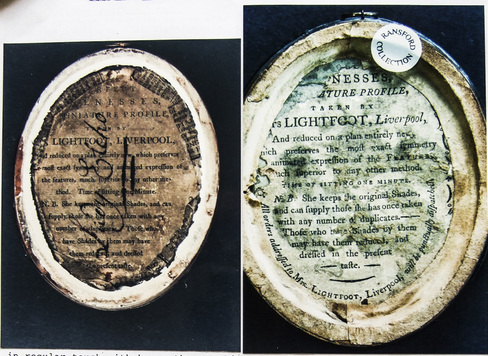 NESSES,
NIATURE PROFILE,
BY
LIGHTFOOT, LIVERPOOL,
And reduced on a plan entirely new, which preserves
most exact
expression of
the features, much superior to any other me-
thod. Time of sitting one Minute.
N. B. She keeps the original Shades, and can
supply those she has once taken with any
number of duplicates. Those who
have Shades by them may have
them reduced and dressed
in the present taste.
RANSFORD
COLLECTION
NESSES,
ATURE PROFILE,
TAKEN BY
LIGHTFOOT, Liverpool,
And reduced on a plan entirely new,
which preserves the most exact symmetry
animated expression of the FEATURES,
much superior to any other method.
TIME OF SITTING ONE MINUTE.
N. B. She keeps the original Shades,
and can supply those she has once taken
with any number of duplicates.
Those who have Shades by them
may have them reduced, and
dressed in the present
taste.
orders addressed to Mrs. LIGHTFOOT, Liverpool, will be punctually dispatched
in regular touch with